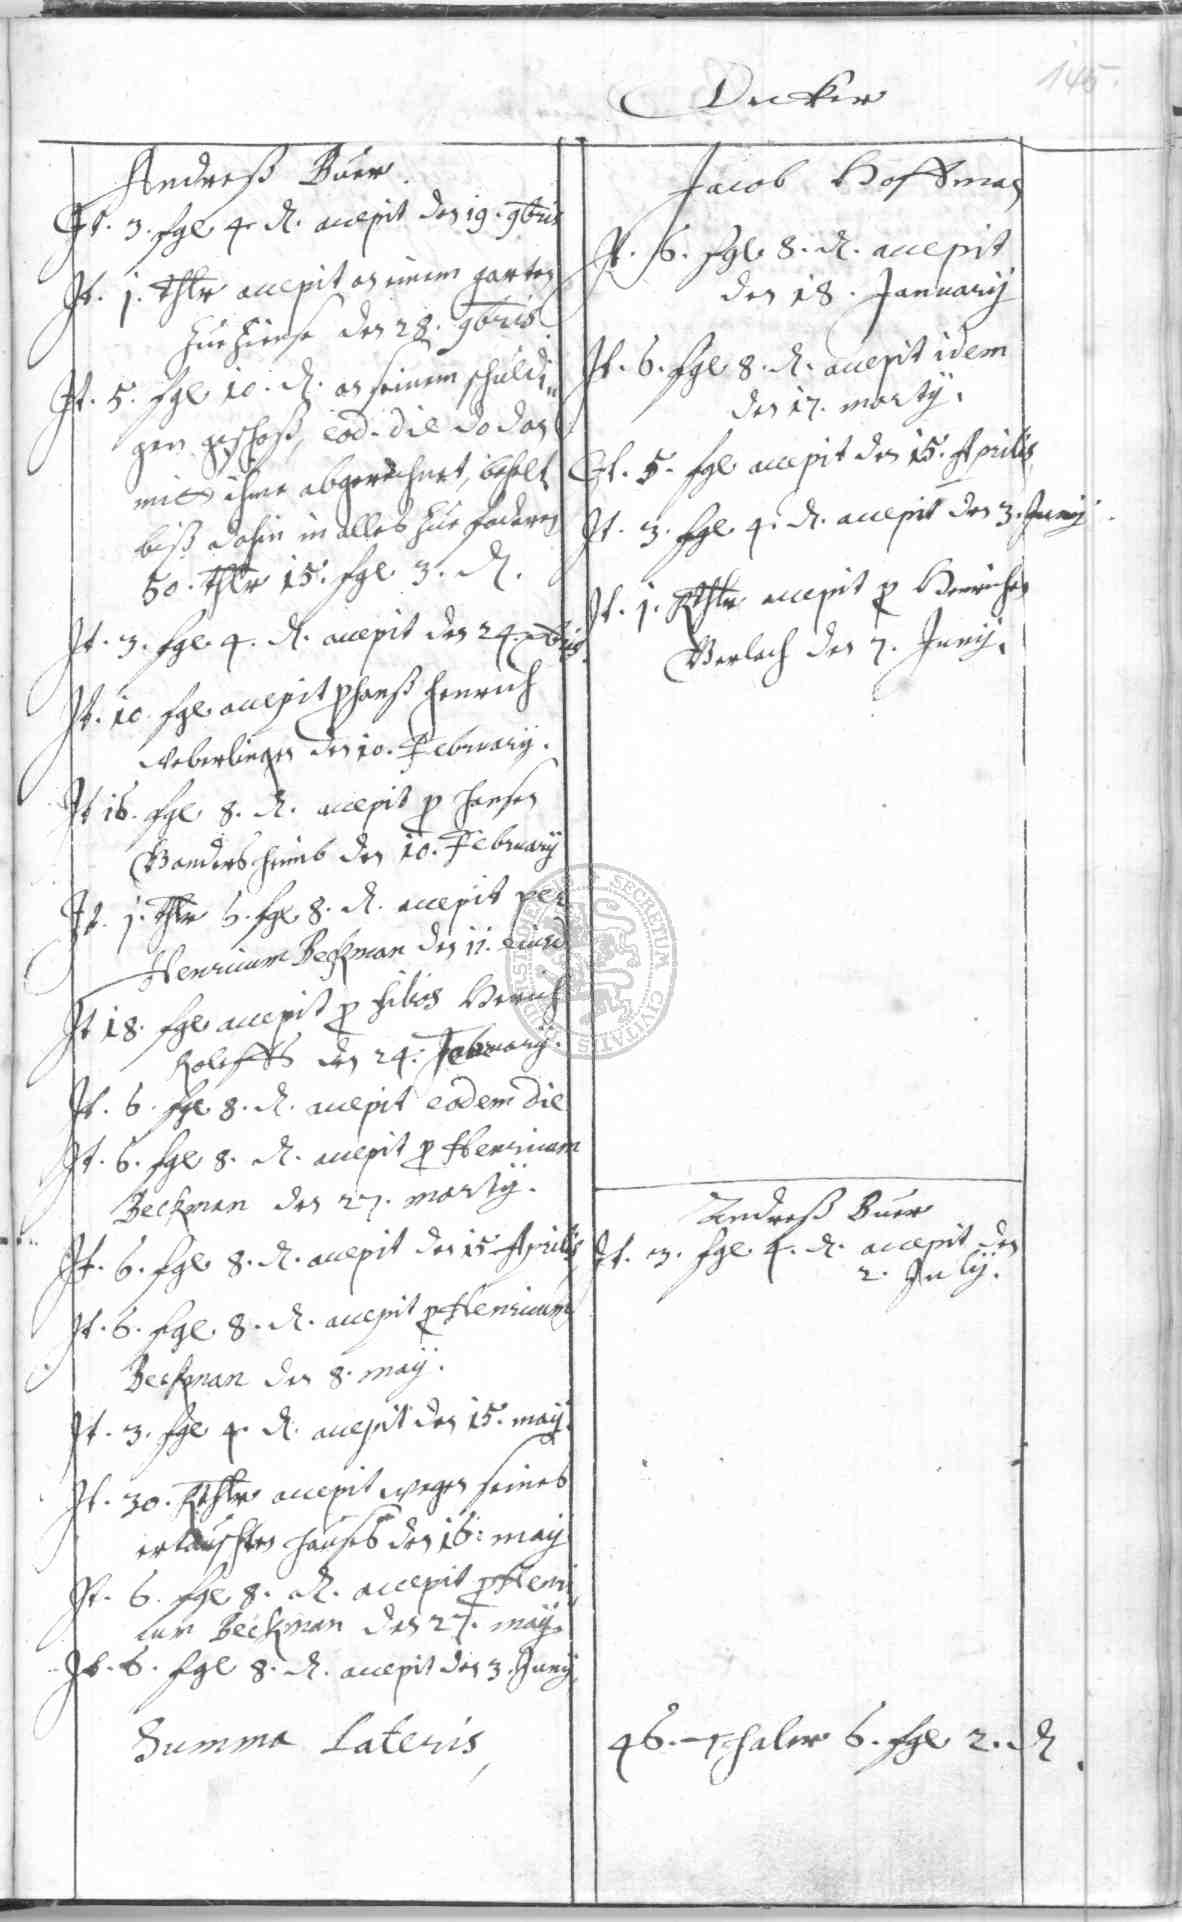 145.
Decker
Andreß Buer.
It. 3. sgl 4. d. accepit den 19. 9bris
It. 1. Thlr accepit an einem garten
zue Hinse den 28. 9bris.
It. 5. sgl 10. d. an seinem schuldi„
gen geschoß, eod. die do dan
mitt ihme abgerechnet, behelt
biß dahin in alles zue foderen
50. Thlr 15. sgl 3. d.
It. 3. sgl 4. d. accepit den 24. xbris.
It. 10. sgl accepit p hanß henrich
den 10. February.
It 16. sgl 8. d. accepit p hansen
den 10. February
It. 1. Thlr 6. sgl 8. d. accepit per
Henricum Beckman den 11. eiusd.
It 18. sgl accepit p Henrich
Roleffs den 24. February.
It. 6. sgl 8. d. accepit eodem die
It. 6. sgl 8. d. accepit p Henricum
Beckman den 27. marty.
It. 6. sgl 8. d. accepit den 15 Aprilis
It. 6. sgl 8. d. accepit p Henricum
Beckman den 8. may.
It. 3. sgl 4. d. accepit den 15. may.
It. 30. Rthlr accepit wegen seines
ertauschten hauses den 16: may
It. 6. sgl 8. d. accepit p Henri
cum Beckman den 27. may.
It. 6. sgl 8. d. accepit den 3. Juny,
Summa Lateris,
Jacob Hoffman
It. 6. sgl 8. d. accepit
den 18. January
It. 6. sgl 8. d. accepit idem
den 17. marty.
It. 5. sgl accepit den 15. Aprilis
It. 3. sgl 4. d. accepit den 3. Juny.
It. 1. Rthlr accepit p Henrichen
Verlach den 7. Juny.
Andreß Buer
It. 3. sgl 4. d. accepit den
2. July.
46. Thaler 6. sgl 2. d.
SECRETUM CIVITATIS